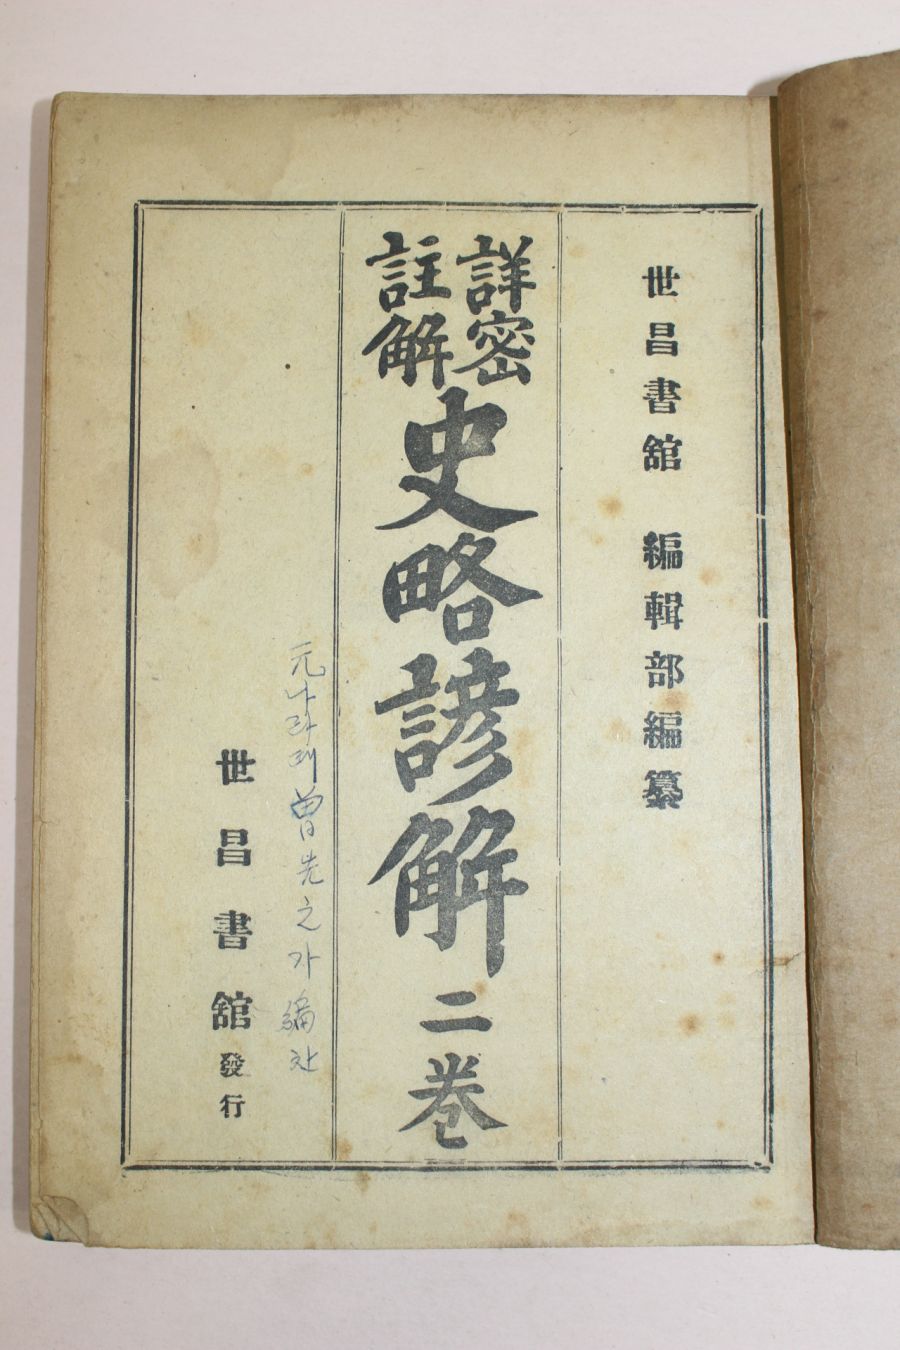 世昌書舘 編輯部編纂
詳密
註解
史略諺解二卷
元나라 曽先之가 編
世昌書舘發行